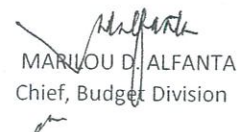 MARILOU D. ALFANTA
Chief, Budget Division